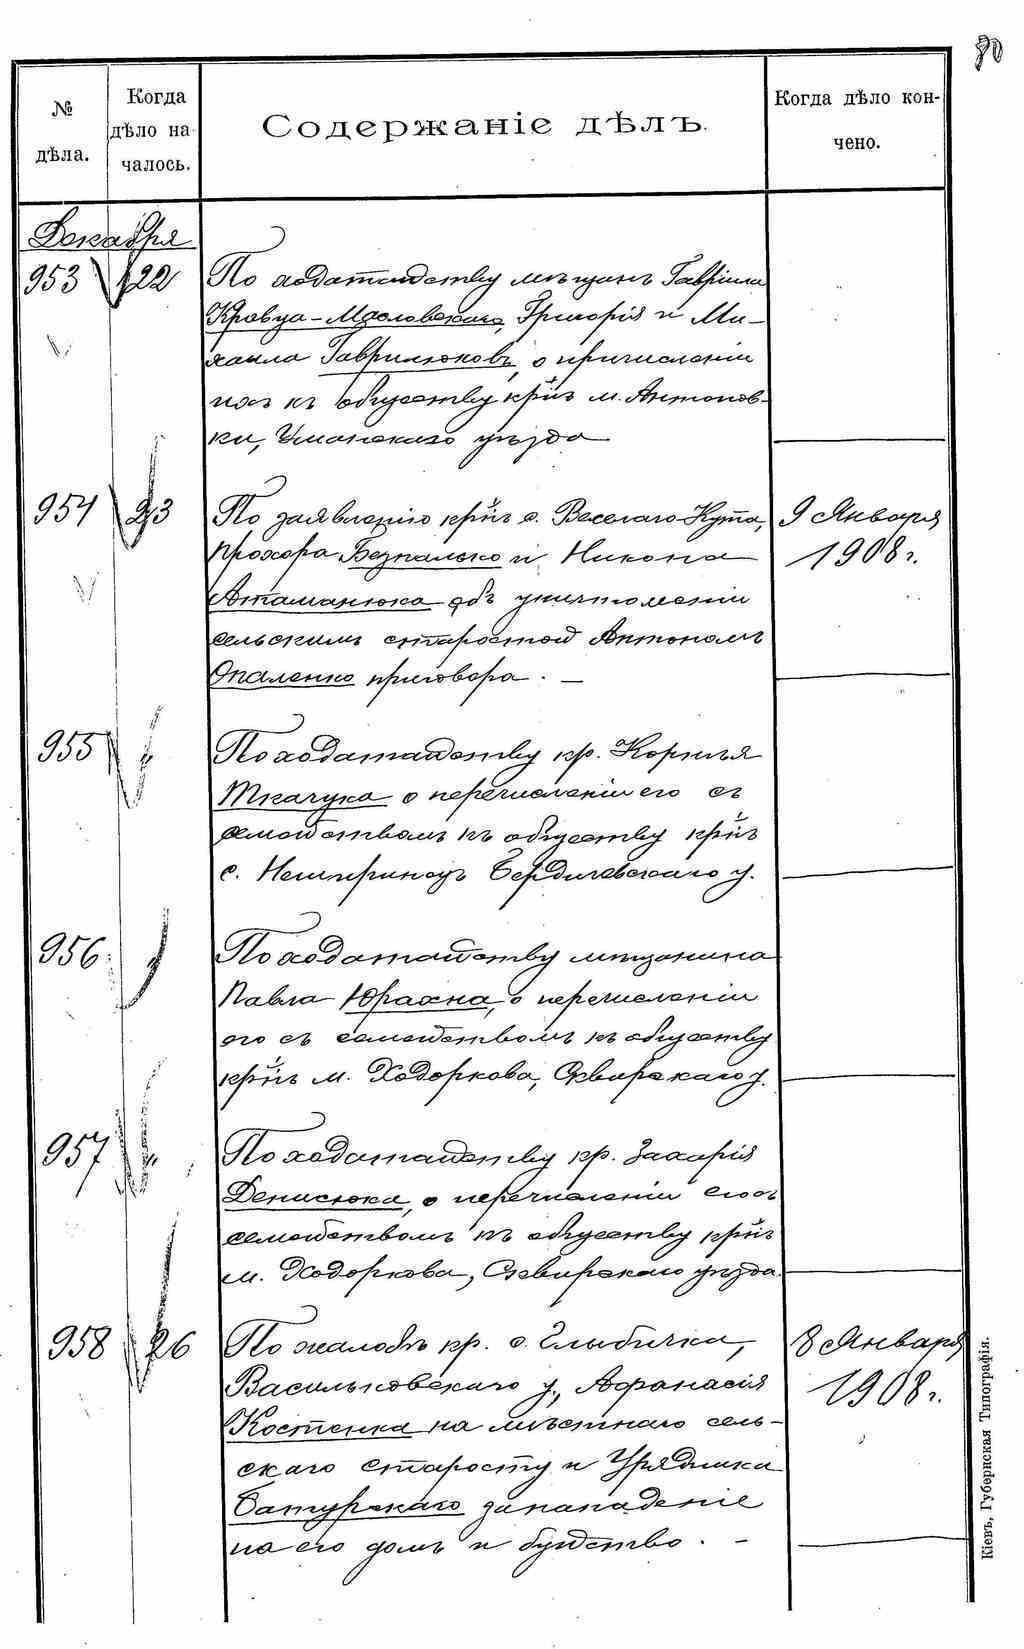 80
№ дѣла.
Когда дѣло на-чалось.
Содержаніе дѣлъ.
Когда дѣло кон-чено.
Декабря
953 22 По ходатайству мѣщанъ Гавріила
Кравца-Масловскаго, Григорія и Ми-
хаила Гаврилюковъ, о причисленіи
ихъ къ обществу кр҃нъ м. Антонов-
ки, Уманскаго уѣзда
954 23 По заявленію кр҃нъ с. Веселаго-Кута, 9 Января
Прохора Безпалько и Никона 1908 г.
Атаманюка объ уничтоженіи
сельскимъ старостой Антономъ
Опаленко приговора. —
955 „ По ходатайству кр. Корнѣя
Ткачука о перечисленіи его съ
семействомъ къ обществу кр҃нъ
с. Немиринецъ Бердичевскаго у.
956 „ По ходатайству мѣщанина
Павла о перечисленіи
его съ семействомъ къ обществу
кр҃нъ м. Ходоркова, Сквирскаго у.
957 „ По ходатайству кр. Захарія
Денисюка, о перечисленіи его съ
семействомъ къ обществу кр҃нъ
м. Ходоркова, Сквирскаго уѣзда.
958 26 По жалобѣ кр. с. Глыбичка, 8 Января
Васильковскаго у., Афанасія 1908 г.
Костенка на мѣстнаго сель-
скаго старосту и Урядника
Батурскаго за нападеніе
на его домъ и буйство. —
Кіевъ, Губернская Типографія.